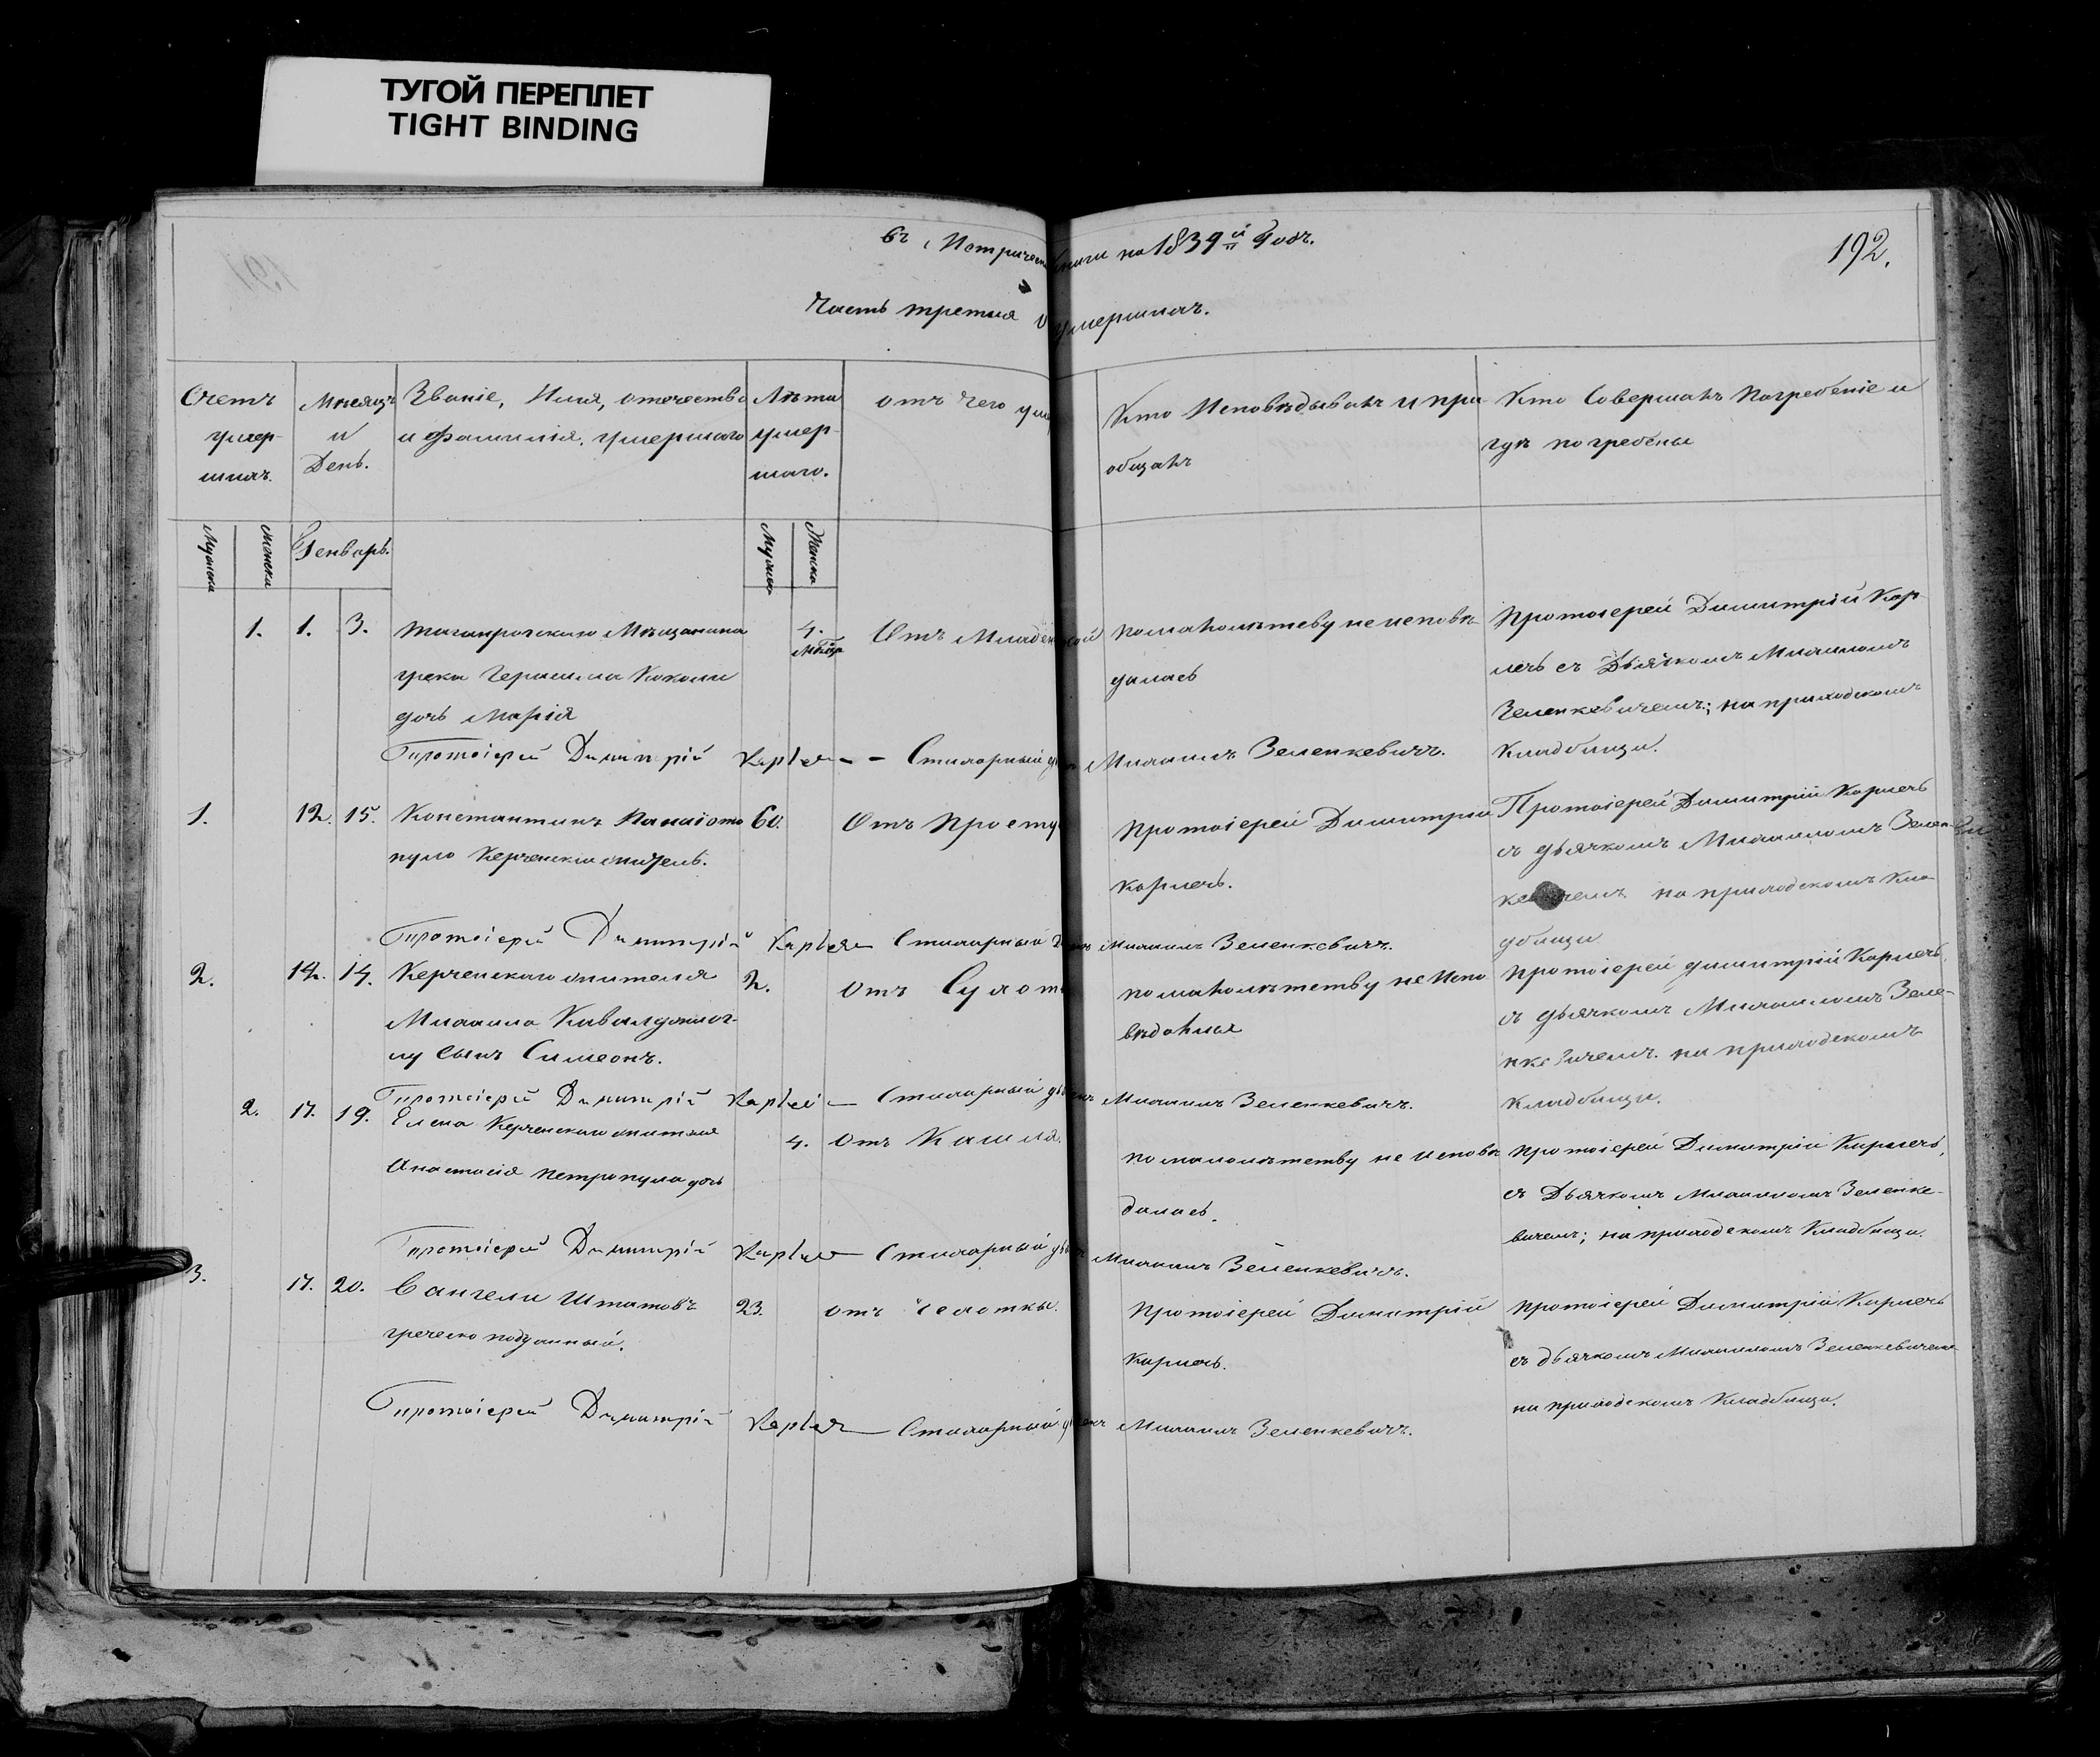 ТУГОЙ ПЕРЕПЛЕТ
TIGHT BINDING
въ Метрической книги на 1839й Годъ.
192.
Часть третия О умершихъ.
Счетъ умер-шихъ.
Мѣсяцъ и День.
Званіе, Имя, отечество и фамилія, умершаго
Лѣта умер-шаго.
отъ чего
Кто Исповѣдывалъ и при-общалъ
Кто Совершалъ Погребеніе и гдѣ погребены
Мужска
Женска
Генварь.
Мужска
Женска
1. 1. 3.
Таганрогскаго Мѣщанина
грека Герасима Кокали
дочь Марія
4.
Отъ Младенской
помалолѣтству не исповѣ-
далась
Протоіерей Димитрій Кар-
печъ съ Дьячкомъ Михаиломъ
Зеленкевичемъ; на приходскомъ
Кладбищи.
Протоіерей Димитрій Стихарный Михаилъ Зеленкевичъ.
1. 12. 15.
Константинъ Панаіото
пуло Керченскій житель.
60.
Отъ Просту
Протоіерей Димитрій
Карпечъ.
Протоіерей Димитрій Карпечъ
съ дьячкомъ Михаиломъ Зелен-
на приходскомъ Кла-
дбищи
Протоіерей Димитрій Стихарный Михаилъ Зеленкевичъ.
2. 12. 14.
Керченскаго жителя
Михаила
сынъ Симеонъ.
2.
Отъ Сухот
по малолѣтству не Испо
вѣдался
Протоіерей Димитрій Карпечъ,
съ дьячкомъ Михаиломъ Зеле-
нкевичемъ. на приходскомъ
Кладбищи.
Протоіерей Димитрій Стихарный Михаилъ Зеленкевичъ.
2. 17. 19.
Елена Керченскаго жителя
Анастасія Петропула дочь
4.
Отъ Кашля.
по малолѣтству не исповѣ
далась.
Протоіерей Димитрій Карпечъ,
съ Дьячкомъ Михаиломъ Зеленке-
вичемъ; на приходскомъ Кладбищи.
Протоіерей Димитрій Стихарный Михаилъ Зеленкевичъ.
3. 17. 20.
греческо подданный.
23.
отъ чахотки.
Протоіерей Димитрій
Карпечъ.
Протоіерей Димитрій Карпечъ
съ дьячкомъ Михаиломъ Зеленкевичемъ
на приходскомъ Кладбищи.
Протоіерей Димитрій Стихарный Михаилъ Зеленкевичъ.